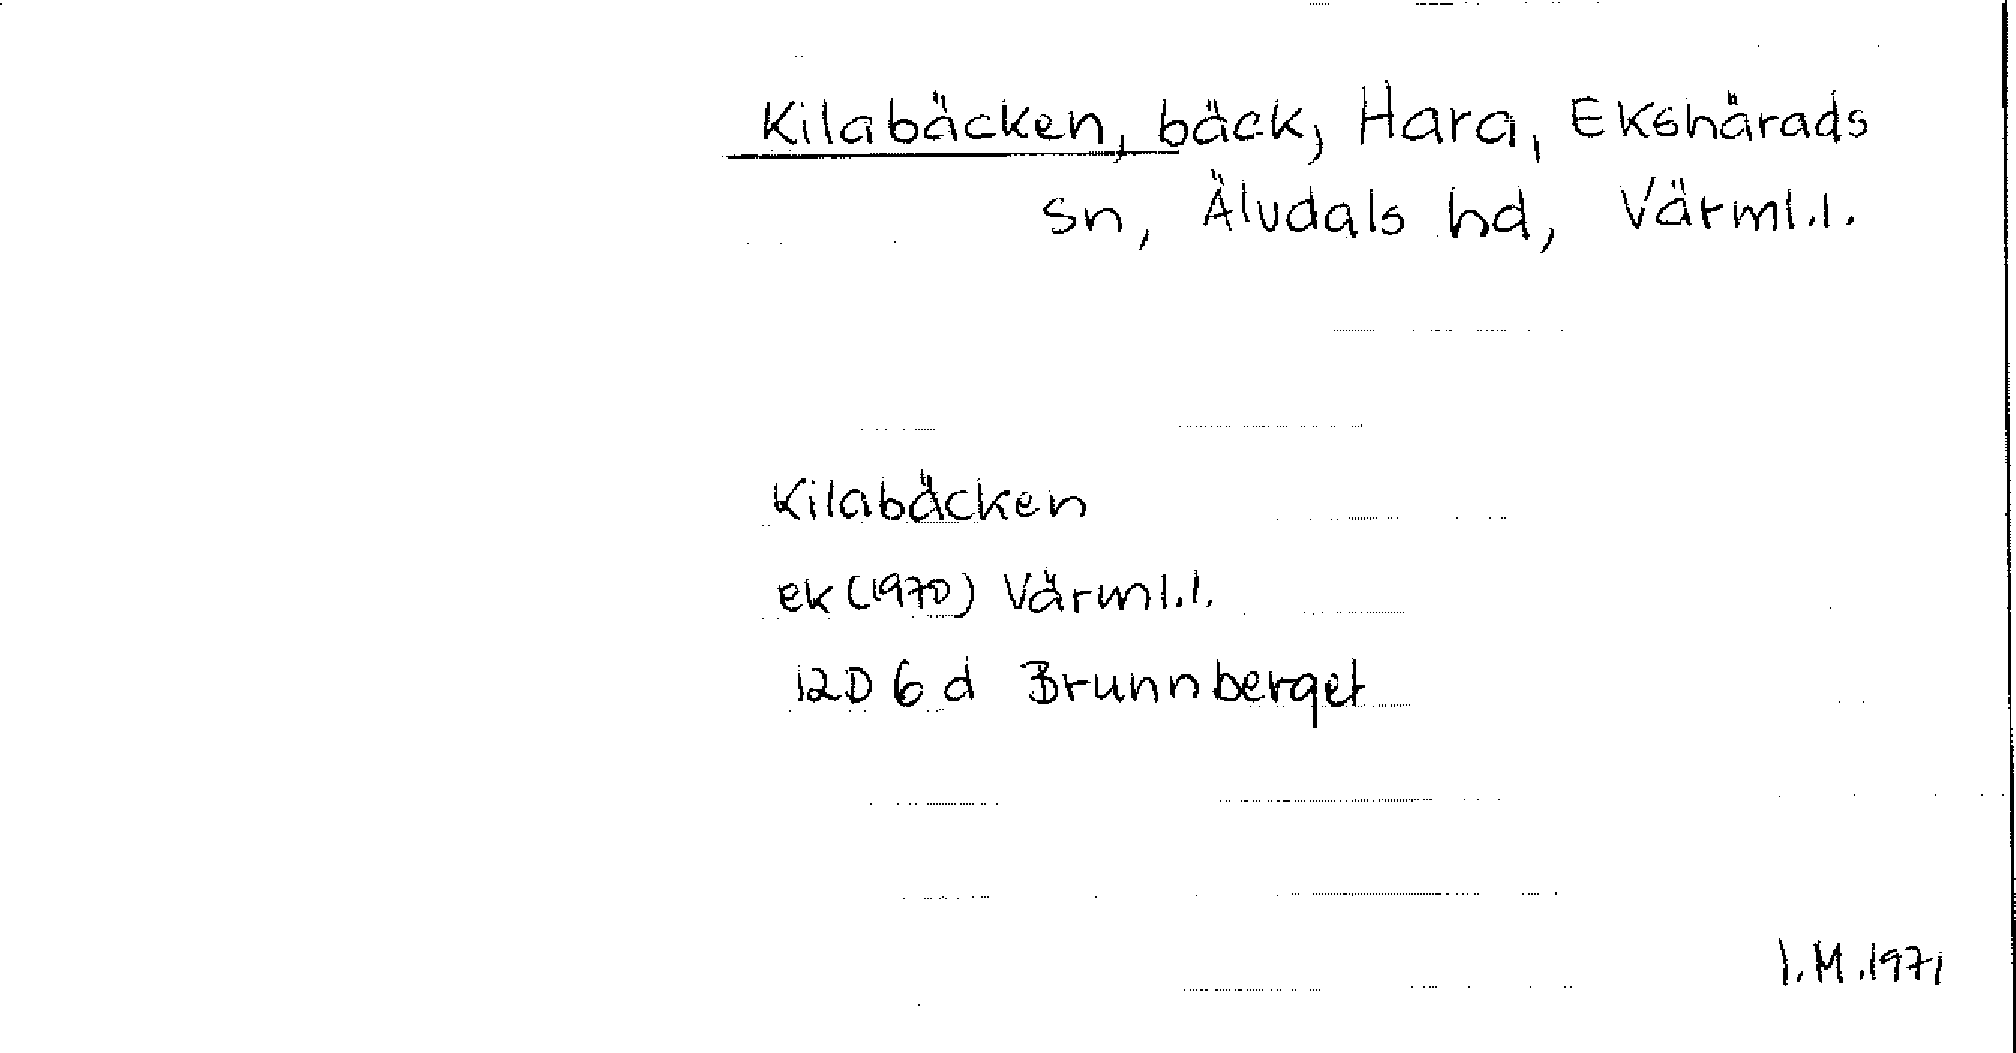 Kilabäcken, bäck, Hara, Ekshärads
sn, Älvdals hd, Värml.l.
Kilabäcken
ek (1970) Värml.l.
12D 6 d Brunnberget
I.M.1971